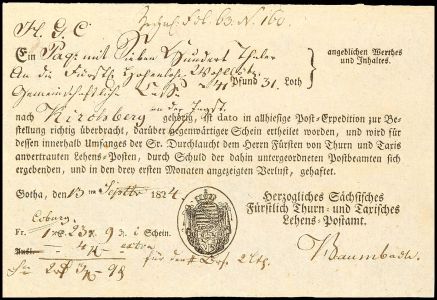 fol. 63. N. 160.
H. G. C
Ein Paq: mit Sieben Hundert Thaler
angeblichen Werthes
und Inhaltes.
An die Fürstl. Hohenlohe
41 Pfund 31. Loth
Gemeinschaftliche
an der Jagst
nach Kirchberg gehörig, ist dato in allhiesige Post-Expedition zur Be-
stellung richtig überbracht, darüber gegenwärtiger Schein ertheilet worden, und wird für
dessen innerhalb Umfanges der Sr. Durchlaucht dem Herrn Fürsten von Thurn und Taxis
anvertrauten Lehens-Posten, durch Schuld der dahin untergeordneten Postbeamten sich
ergebenden, und in den drey ersten Monaten angezeigten Verlust, gehaftet.
Gotha, den 13 ten Septbr 1824.
Herzogliches Sächsisches
Fürstlich Thurn- und Taxisches
Lehens-Postamt.
Coburg
Fr. 1 23 9 3. i Schein.
Ausl. 4 extra
2 3 9
Baumbach